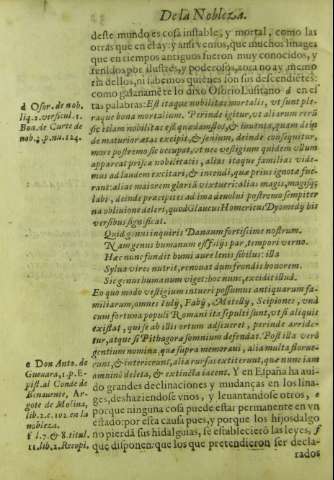 De la Nobleza.
deste mundo es cosa instable, y mortal, como las
otras que en el ay: y ansi vemos, que muchos linages
que en tiempos antiguos fueron muy conocidos, y
tenidos por ilustres, y poderosos, aora no ay memo
ria dellos, ni sabemos quiénes son sus descendiẽtes:
como galanamẽte lo dixo Osorio Lusitano d en es
tas palabras: Est itaque nobilitas mortalis, vt sunt ple-
raque bona mortalium. Perinde igitur, vt aliarum rerũ
sic etiam nobilitatis est
de maturior ætas excipit, & senium, deinde consequitur,
more postremo sic occupat, vt nec vestigium quidem vllum
appareat priscæ nobilitatis, alias itaque familias vide-
mus ad laudem excitari, & intendi, quæ prius ignotæ fue-
rant: alias maiorem gloriã virtute: alias magis, magisq́;
labi, deinde præcipites ad ima deuolui postremo sempiter
na obliuione deleri, quod Glaucus Homericus Dyomedy his
versibus significat.
Quid genus inquiris Danaum fortissime nostrum.
Nam genus humanum est foliis par, tempori verno.
Hæc nunc fundit humi aure lenis sibilus: illa
Sylua vires nutrit, renouat dum frondis honorem.
Sic genus humanum viget: hoc nunc, excidit illud.
Eo quo modo vestigium intueri possumus antiquarum fa-
miliarum, omnes Iuly, Faby, Metelly, Scipiones, vnà
cum fortuna populi Romani ita sepulti sunt, vt si aliquis
existat, qui se ab illis ortum adiecret, perinde arride-
tur, atque si Pithagoræ somnium defendat. Post illa ver
gentium nomina, quæ supra memoraui, alia multa fuerunt
& interierunt, alia rursus extiterunt, quæ nunc iam
omnino deleta, & extincta iacent. Y en España ha aui-
do grandes declinaciones y mudanças en los lina-
ges, deshaziendose vnos, y leuantandose otros, e
porque ninguna cosa puede estar permanente en vn
estado: por esta causa pues, y porque los hijosdalgo
no pierdã sus hidalguias, se establecierõ las leyes, f
que disponen: que los que pretendieron ser decla-
rados
d Osor. de nob.
lib. 2. versicul. 1.
Boa. de Curte de
nob. 4. p. nu. 124.
e Don Ant. de
Gueuara, 1. p. E-
pist. al Conde de
Benauente, Ar-
gote de Molina,
lib. 2. c. 102. en la
nobleza.
f l. 7. & 8. titul.
11. lib. 2. Recopi.